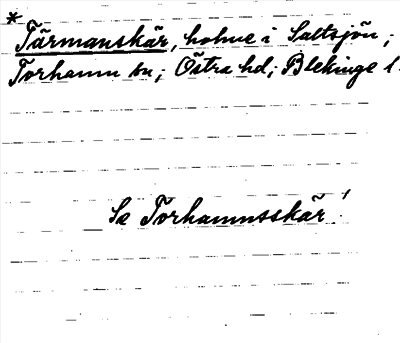 * Tärmanskär, holme i Saltsjön;
Torhamn sn; Östra hd; Blekinge l.
Se Torhamnsskär!